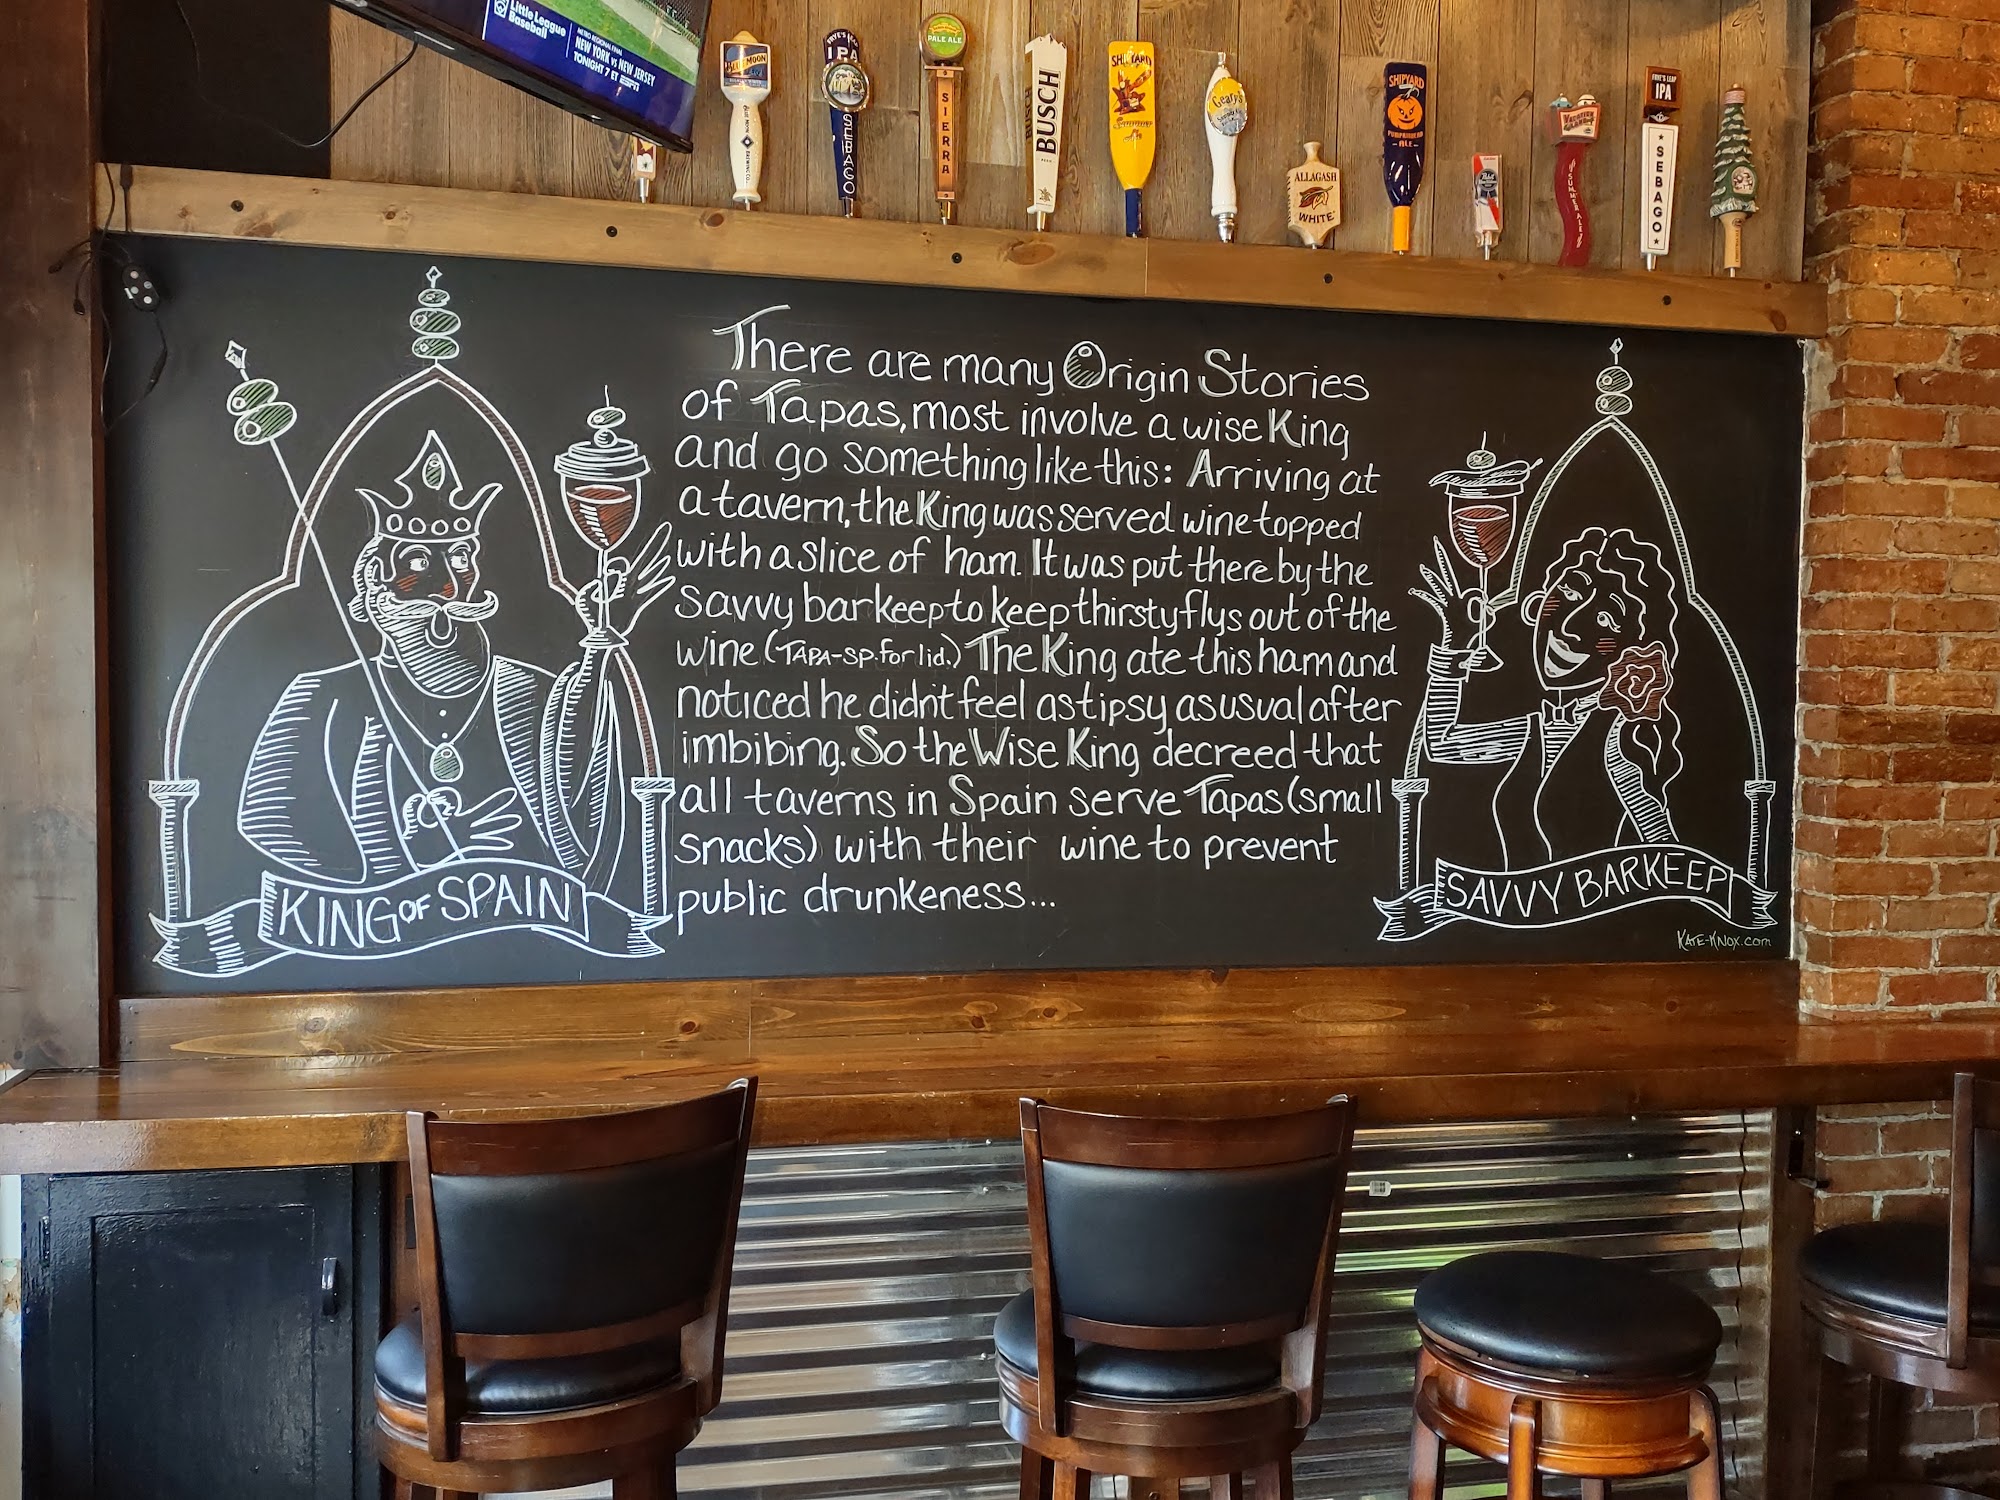 Little League
Baseball
METRO REGIONAL FINAL
NEW YORK vs NEW JERSEY
TONIGHT 7 ET ESPN
BLUE MOON
FRYE'S LEAP
IPA
SEBAGO
PALE ALE
SIERRA
BUSCH
BUSCH
SHIPYARD
Summer
Geary's
ALLAGASH
WHITE
SHIPYARD
PUMPKINHEAD
ALE
SUMMER ALE
FRYE'S LEAP
IPA
SEBAGO
There are many Origin Stories
of Tapas, most involve a wise King
and go something like this: Arriving at
a tavern, the King was served wine topped
with a slice of ham. It was put there by the
savvy barkeep to keep thirsty flys out of the
wine (TAPA-SP. for lid.) The King ate this ham and
noticed he didn't feel as tipsy as usual after
imbibing. So the Wise King decreed that
all taverns in Spain serve Tapas (small
snacks) with their wine to prevent
public drunkeness...
KING OF SPAIN
SAVVY BARKEEP
KATE-KNOX.com